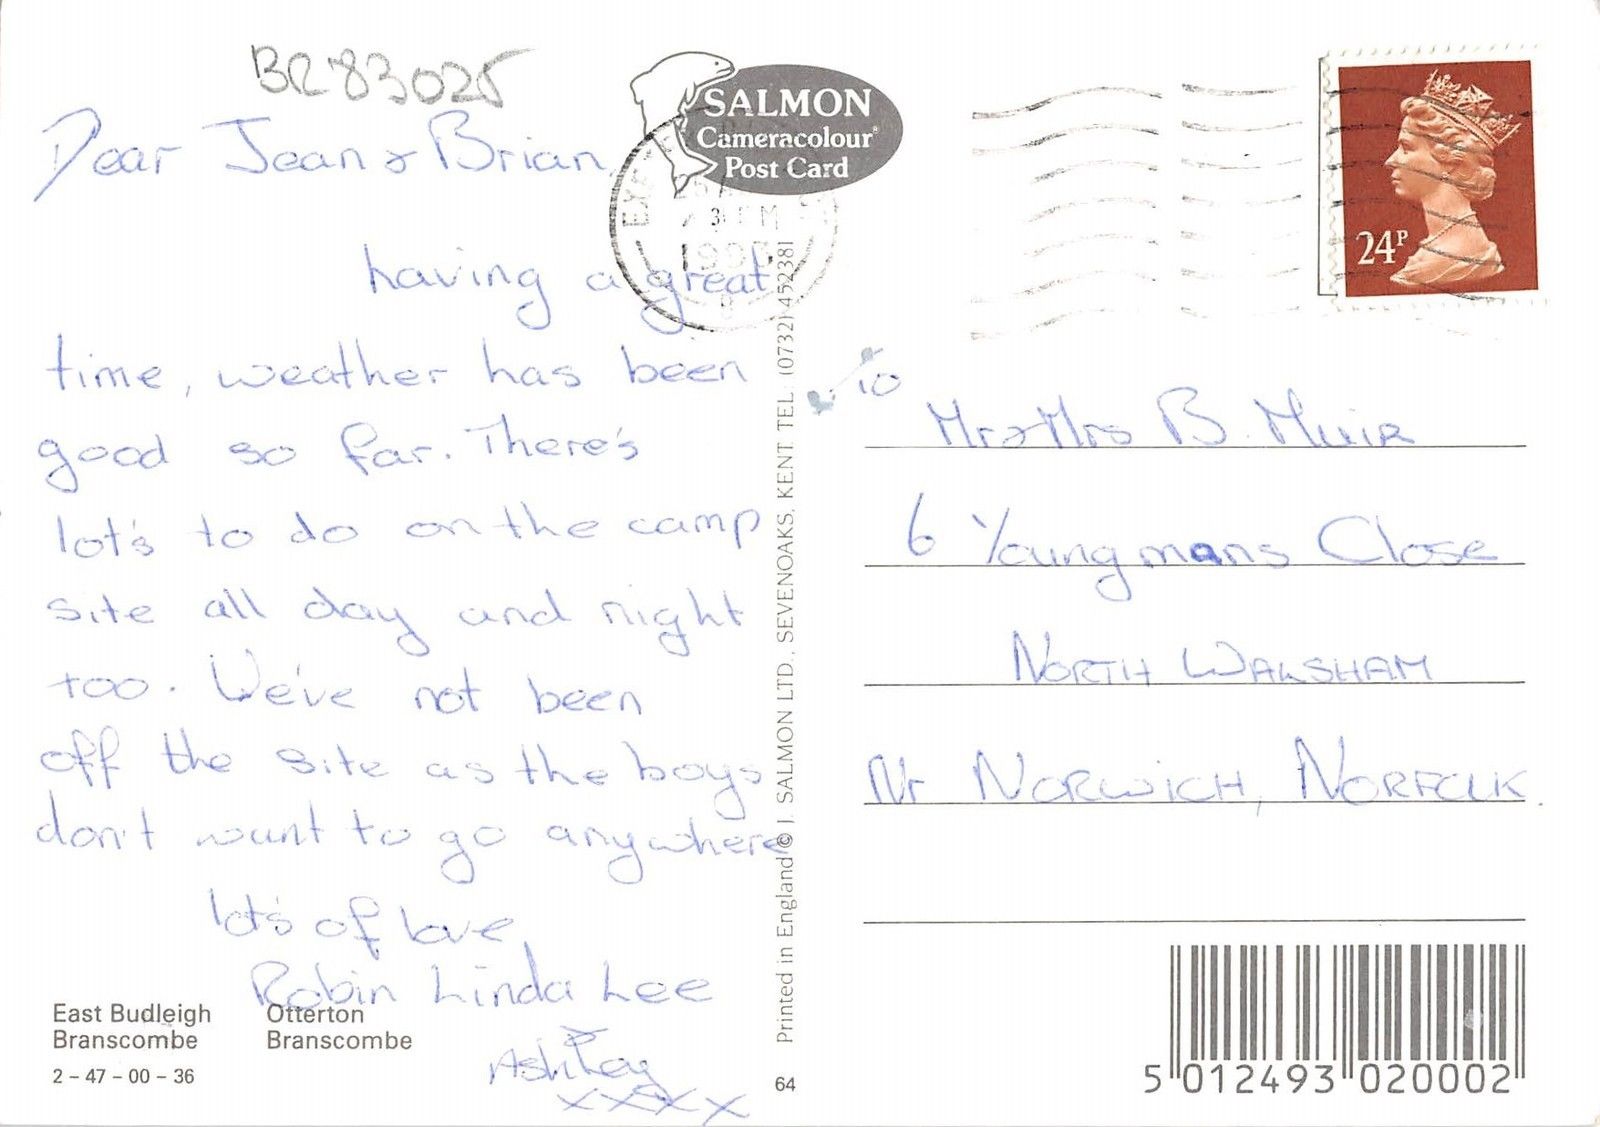 BR83025
Dear Jean & Brian,
having a great
time, weather has been
good so far. There's
lot's to do on the camp
site all day and night
too. We've not been
off the site as the boys
don't want to go anywhere
lot's of love
Robin Linda Lee
&
Ashley
xxxx
East Budleigh Otterton
Branscombe Branscombe
2 – 47 – 00 – 36
SALMON
Cameracolour®
Post Card
Printed in England © J. SALMON LTD., SEVENOAKS, KENT. TEL : (0732) 452381
64
24P
10
Mr & Mrs B. Muir
6 Youngmans Close
NORTH WALSHAM
Nr NORWICH, NORFOLK.
5 012493 020002